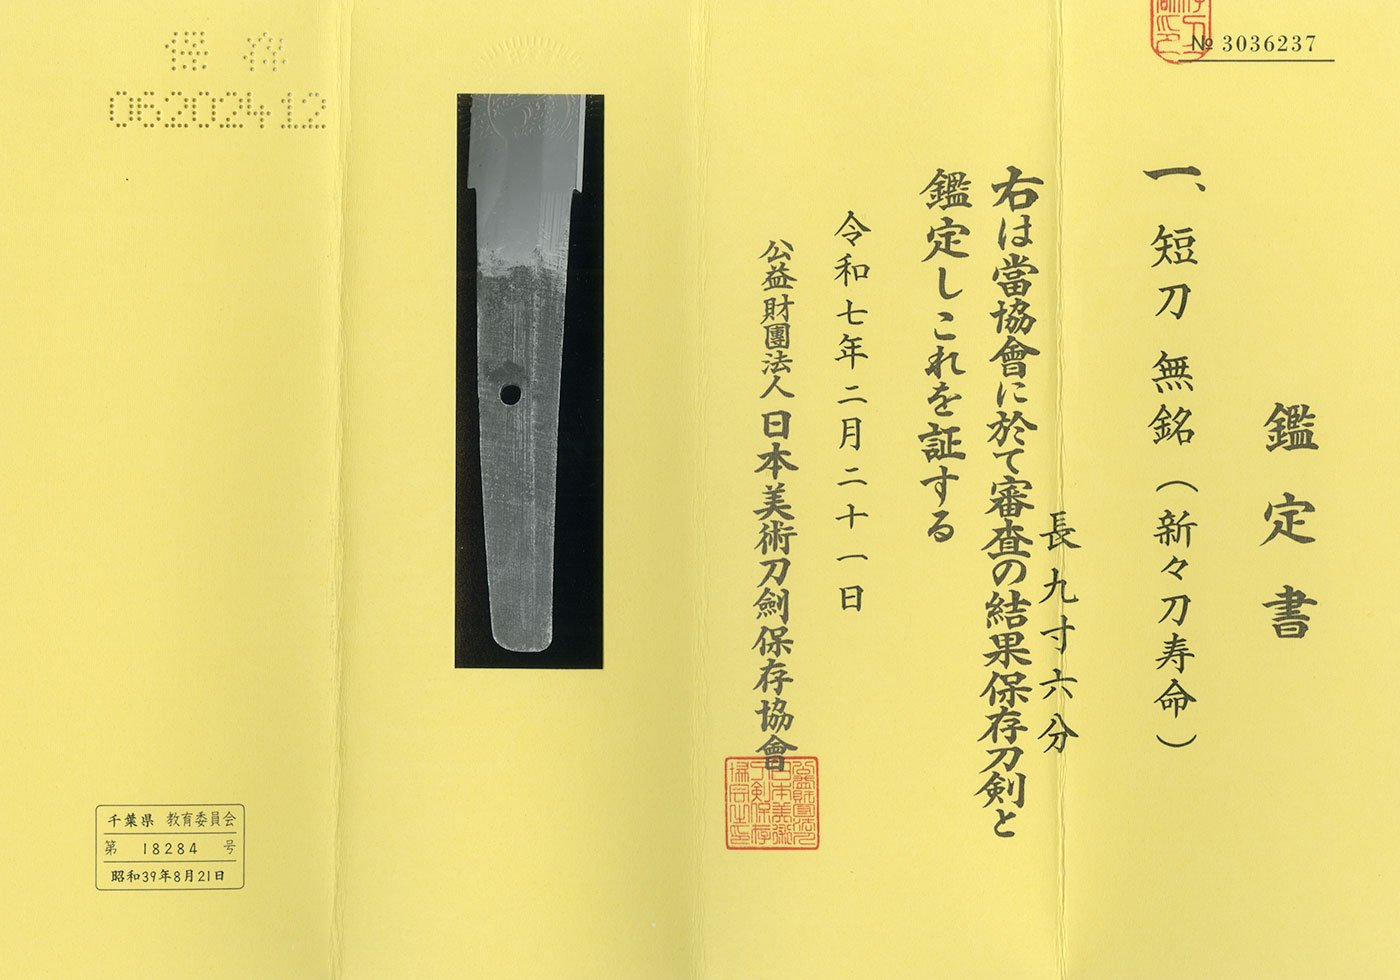 № 3036237
鑑定書
一、短刀 無銘（新々刀寿命）
長九寸六分
右は當協會に於て審査の結果保存刀剣と
鑑定しこれを証する
令和七年二月二十一日
公益財團法人日本美術刀劍保存協會
保存
06202412
千葉県 教育委員会
第 18284 号
昭和39年8月21日